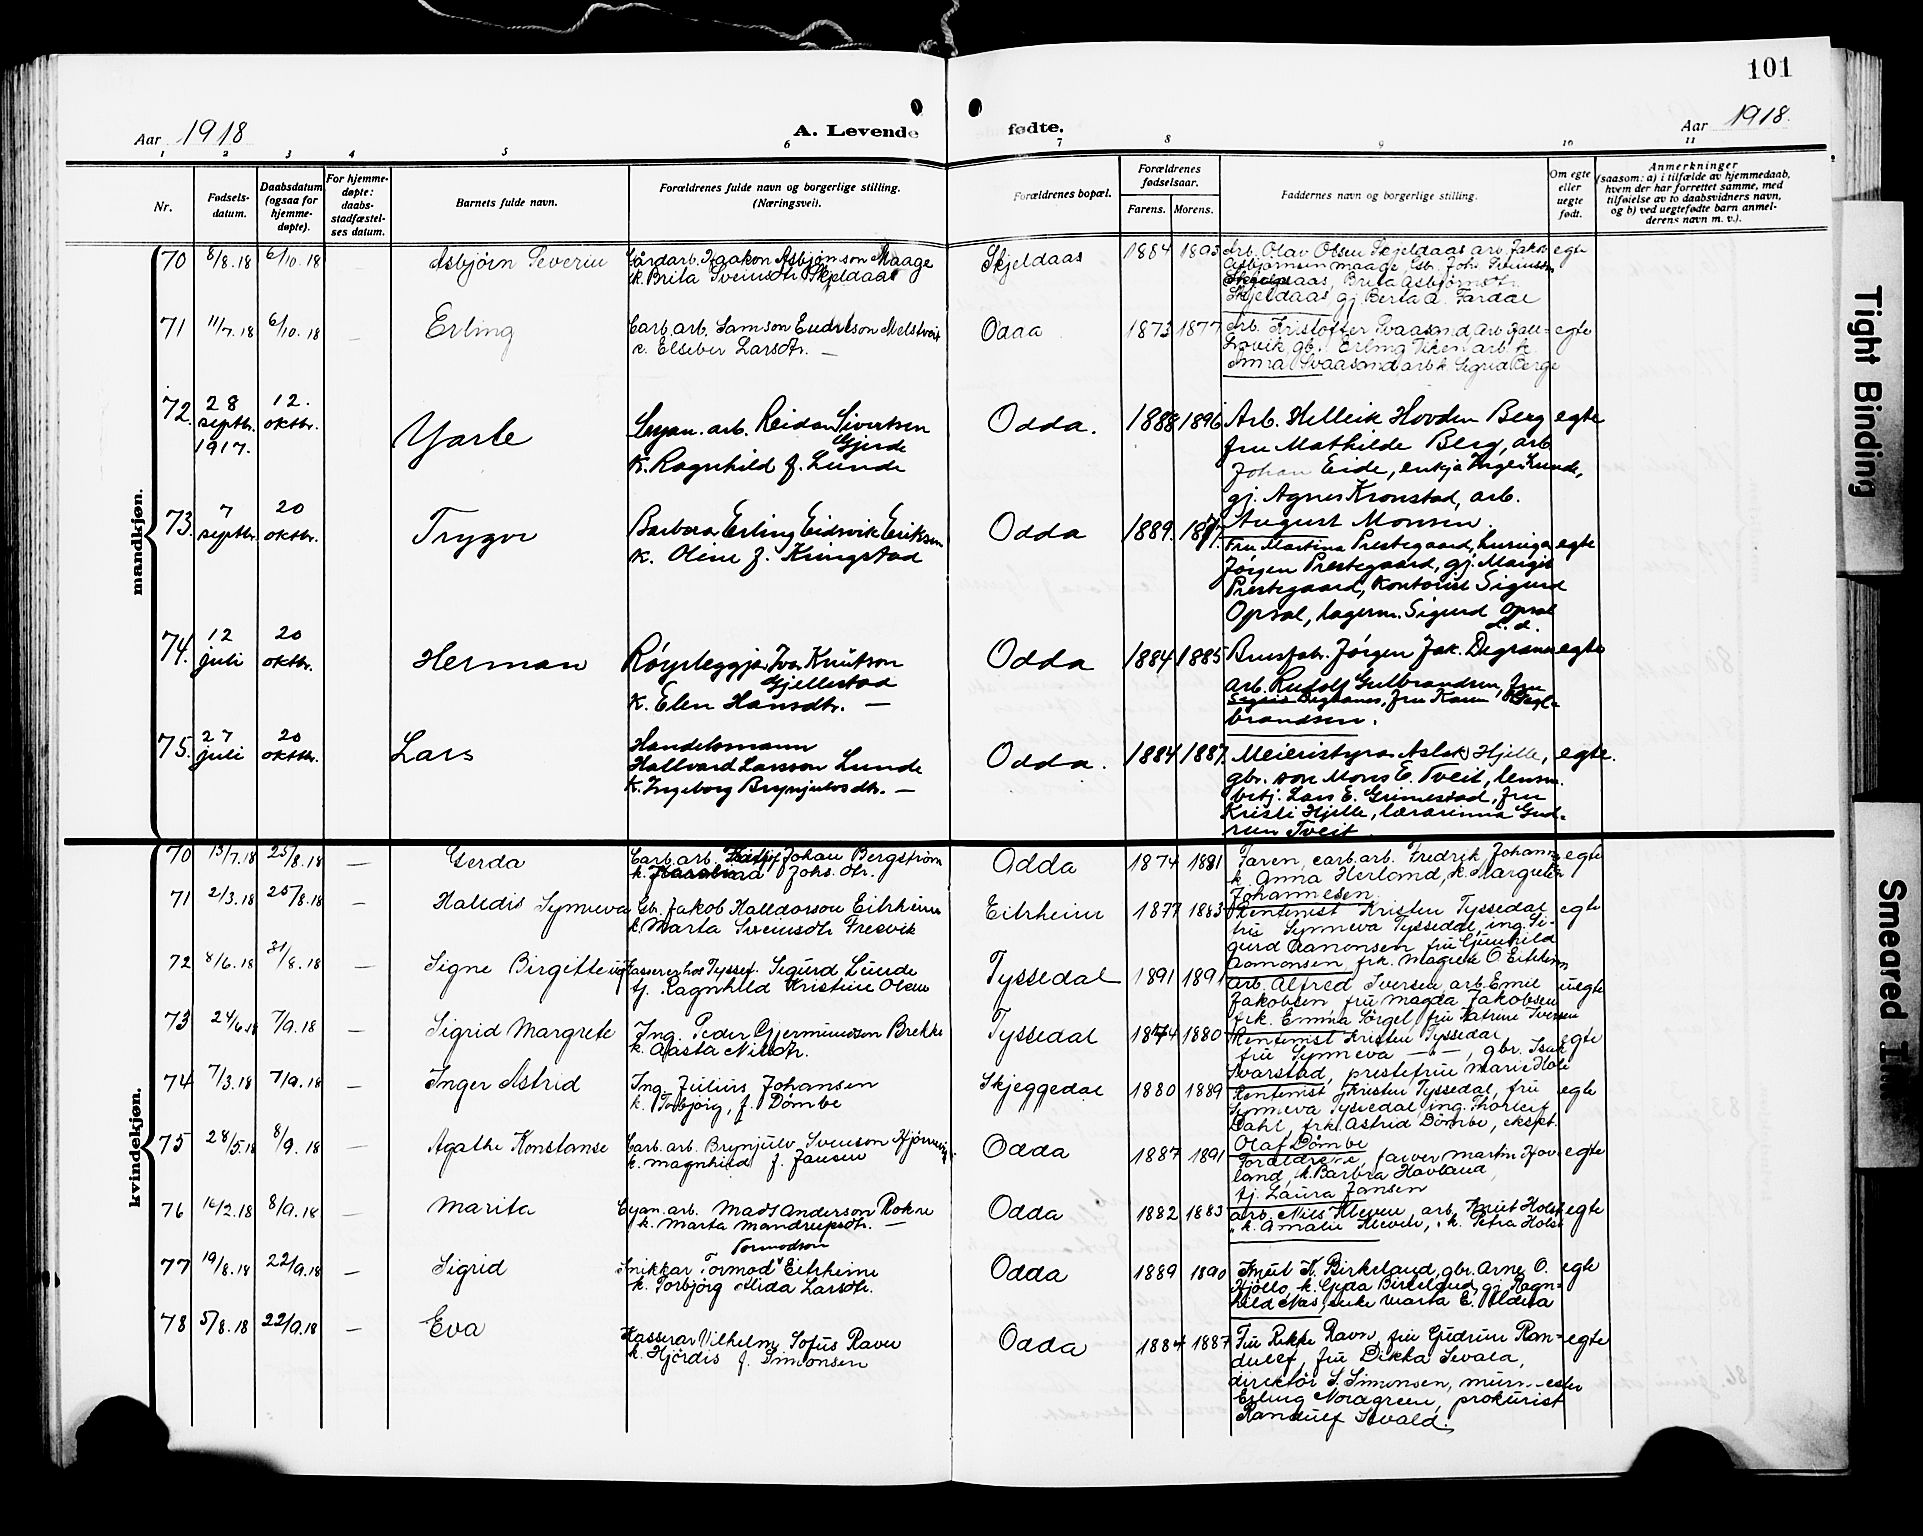 101
Aar 1918
A. Levende
fødte.
Aar 1918.
1 2 3 4 5 6 7 8 9 10 11
Nr.
Fødsels-
datum.
Daabsdatum
(ogsaa for
hjemme-
døpte).
For hjemme-
døpte:
daabs-
stadfæstel-
ses datum.
Barnets fulde navn.
Forældrenes fulde navn og borgerlige stilling.
(Næringsvei).
Forældrenes bopæl.
Forældrenes
fødselsaar.
Farens. Morens.
Faddernes navn og borgerlige stilling.
Om egte
eller
uegte
født.
Anmerkninger
(saasom: a) i tilfælde av hjemmedaab,
hvem der har forrettet samme, med
tilføielse av to daabsvidners navn,
og b) ved uegtefødte barn anmel-
derens navn m. v.).
mandkjøn.
70 8/8.18 6/10.18 Asbjørn Severin
Gårdarb. Haakon Asbjørnson Maage
k. Brita Sveinsdtr. Skjeldaas
Skjeldaas 1884 1893
Arb. Olav Olsen Skjeldaas arb. Jakob
Asbjørnsen Maage, Gb. Joh. Sveinsson
Skjeldaas, Brita Asbjørnsdtr.
Skjeldaas, gj. Berta A. Tardal
egte
71 11/7.18 6/10.18 Erling
Carb. arb. Samson Endreson
k. Elseber Larsdtr. —
Odda 1873 1877
Arb. Kristoffer Svaasand arb.
gb. Erling Viken arb. k.
Anna Svaasand arb. k. Sigrid Berge
egte
72. 28 septbr. 1917. 12. oktbr. Yarle
Cyan. arb. Reidar Sivertsen
Gjerde
k. Ragnhild f. Lunde
Odda. 1888 1896
Arb. Helleik Hovden Berg
fru Mathilde Berg, arb
Johan Eide, enkja Lunde,
gj. Agnes Kronstad, arb.
August Monsen.
egte
73. 7 septbr. 20 oktbr. Trygve
Barberar Erling Eidsvik Eriksen
k. Olene f. Kringstad
Odda 1889.
Fru Martina Prestegaard,
Jørgen Prestegaard, gj. Margit
Prestegaard, kontorist Sigurd
Opsal, lagerm. Sigurd Opsal
egte
74. 12 juli 20 oktbr. Herman
Røyrleggjar Ivar Knutson
Gjellestad
k. Elen Hansdtr. —
Odda 1884 1885
Jørgen Jak. Digranes
arb. Rudolf Gulbrandsen, fru
Sigrid Digranes, fru Karen Gul-
brandsen.
egte
75. 27 juli 20 oktbr. Lars
Handelsmann
Hallvard Larsson Lunde
k. Ingeborg Brynjulvsdtr. —
Odda. 1884 1887.
Meieristyrar Aslak Hjelle,
gbr. son Mons E. Tveit, lensm.
betj. Lars E. Grimestad, fru
Kristi Hjelle, lærarinna Gud-
run Tveit
egte.
kvindekjøn.
70 13/7.18 25/8.18 — Gerda
Carb. arb. Johan Bergstrøm
k. Johs. dtr.
Odda 1874 1881
Faren, carb. arb. Fredrik Johann-
k. Anna Herland, k. Margreta
Johannesen
egte
71 2/3.18 25/8.18 — Halldis Synneva
Gb. Jakob Halldorson Eitrheim
k. Marta Sveinsdtr Freövik
Eitrheim 1877 1883
Rentenist Kristen Tyssedal
fru Synneva Tyssedal, ing. Si-
gurd Aamonsen fru Gunhild
Aamonsen frk. Magrete O Eitrheim
egte
72 8/6.18 31/8.18 — Signe Birgitte
Kasserer hos Tyssef. Sigurd Lunde
tj. Ragnhild Kristine Olsen
Tyssedal 1891 1891
arb. Alfred Iversen arb. Emil
Jakobsen fru Magda Jakobsen
frk. Emma Sørgel, fru Katrine Iversen
uegte
73 24/6.18 7/9.18 — Sigrid Margrete
Ing. Peder Gjermundson Brekke
k. Aasta Nilsdtr.
Tyssedal 1874 1880
Rentenist Kristen Tyssedal
fru Synneva —"—, gbr. Isak
Svarstad, prestefru Marie Hole
egte
74 7/3.18 7/9.18 — Inger Astrid
Ing. Julius Johansen
k. Torbjørg, f. Dømbe
Skjeggedal 1880 1889
Rentenist Kristen Tyssedal, fru
Synneva Tyssedal, ing. Thorleif
Dahl, frk. Astrid Dømbe, ekspt.
Olaf Dømbe
egte
75 28/5.18 8/9.18 — Agathe Konstanse
Carb. arb. Brynjulv Svenson
k. Magnhild f. Jansen
Odda 1887 1891
Foreldrene, farver Martin Hov-
land, k. Barbra Havland,
tj. Laura Jansen
egte
76 16/2.18 8/9.18 — Marita
Cyan. arb. Mads Anderson Rokne
k. Marta Mandrupsdtr. —
Odda 1882 1883
arb. Nils Kleven, arb. Knut Holst
k. Amalie Kleven, k. Petra Holst
egte
77 19/8.18 22/9.18 — Sigrid
Tormodson
Snikkar Tormod Eitrheim
k. Torbjørg Alida Larsdtr.
Odda 1889 1890
Knut K. Birkeland, gbr. Arne O.
Hjøllo, k. Gyda Birkeland, gj. Ragn-
hild Aas, enke Marta E.
egte
78 5/8.18 22/9.18 — Eva
Kasserar Vilhelm Sofus Ravn
k. Hjørdis f. Simonsen
Odda 1884 1887
Fru Rikke Ravn, fru Gudrun Ran-
dulff, fru Dikka Sevala,
direktør S. Simonsen,
Erling Nordgreen, prokurist
Randulf
egte
Tight Binding
Smeared Ink